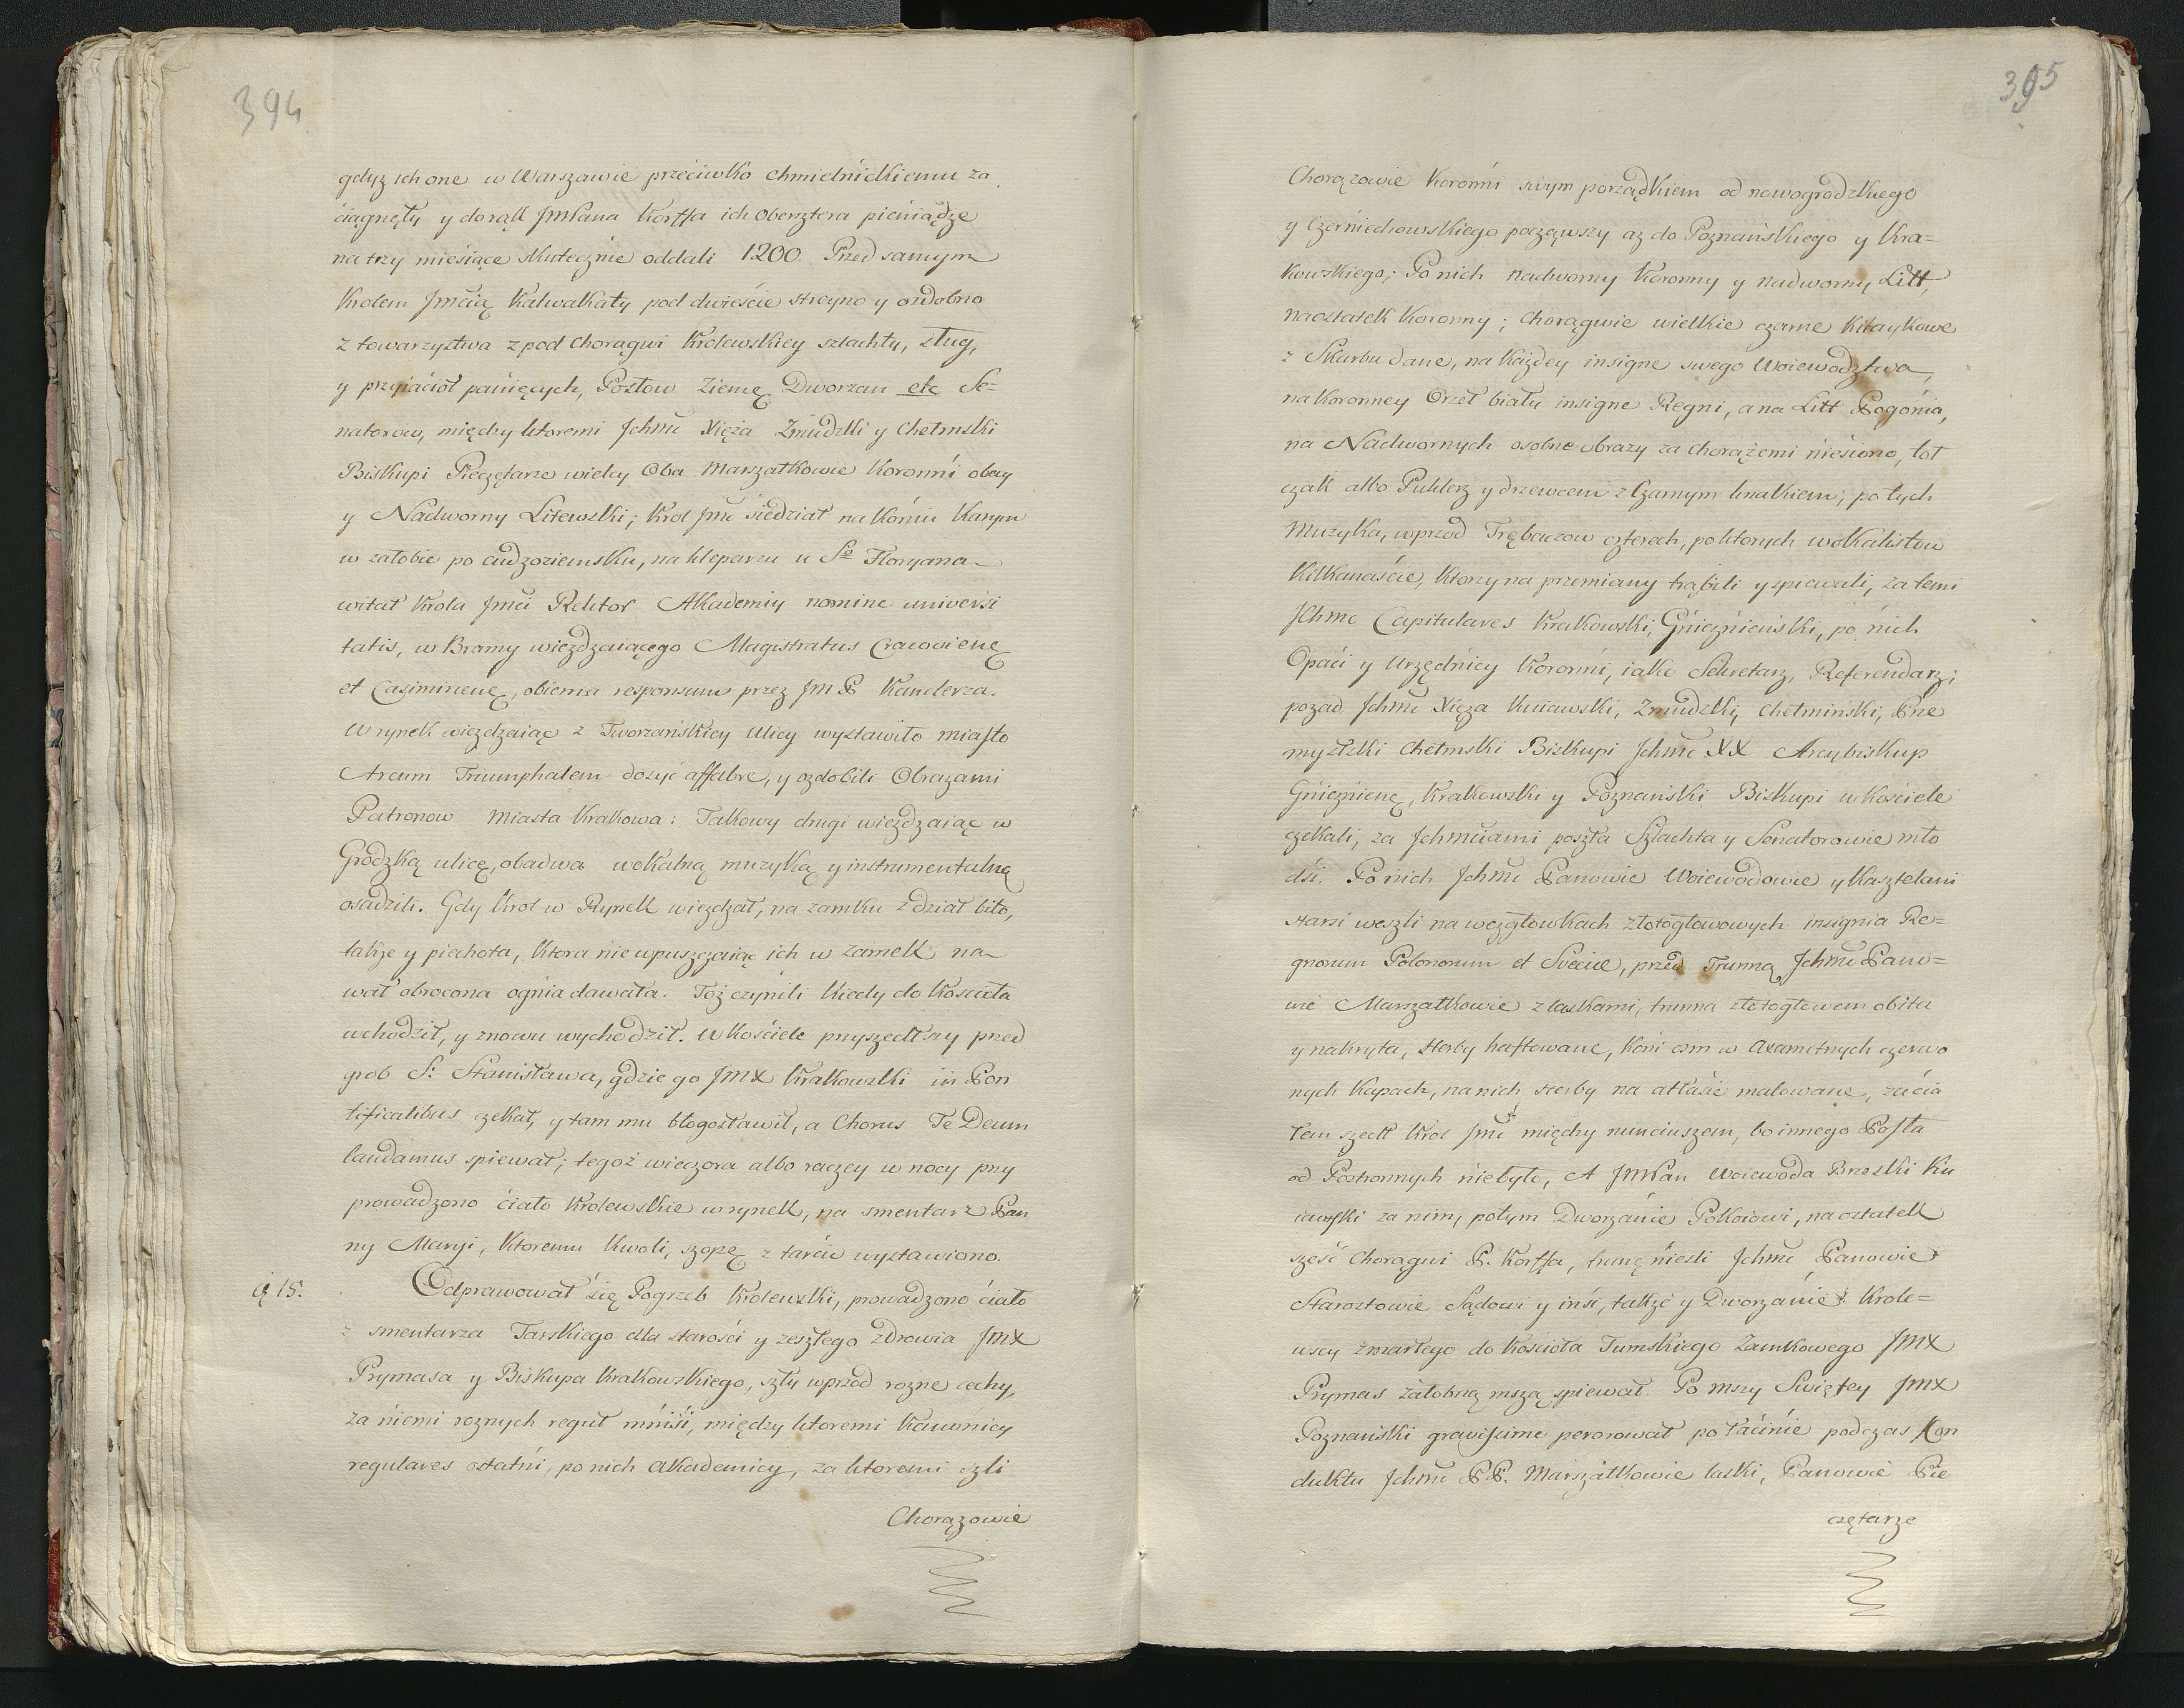 394
gdyz ich one w Warszawie przeciwko Chmielnickiemu za
ciągnęły y do rąk JmPana Korffa ich Obersztera pieniądze
na trzy miesiące skutecznie oddali 1200. Przed samym
Krolem Jmcią Kalwakaty pod dwieście stroyno y ozdobno
z towarzystwa z pod Chorągwi Krolewskiey szlachty, sług,
y przyiaciół panięcych, Posłow Ziemę Dworzan etc Se=
natorow, między ktoremi Jchmć Xięża Zmudzki y Chełmski
Biskupi Pieczętarze wielcy Oba Marszałkowie Koronni obay
y Nadworny Litewski; Krol Jmć siedział na Koniu Karym
w załobie po cudzoziemsku, na kleparzu u Sº Floryana
witał Krola Jmci Rektor Akademiy nomine universi
tatis, w Bramy wiezdzaiącego Magistratus Cracovienę
et Casimirienę, obiema responsum przez Jm P Kanclerza.
W rynek wiezdzaiąc z Tworzańskiey Ulicy wystawiło miasto
Arcum Triumphalem dosyć affabre, y ozdobili Obrazami
Patronow Miasta Krakowa: Takowy drugi wiezdzaiąc w
Grodzką ulicę, obadwa wokalną muzyką y instrumentalną
osadzili. Gdy Krol w Rynek wiezdzał, na zamku z dział bito,
takze y piechota, ktora nie wpuszczaiąc ich w zamek na
wał obrocona ognia dawała. Toż czynili kiedy do Koscioła
wchodził, y znowu wychodził. W Kościele przyszedłszy przed
grob S: Stanisława, gdzie go JMX Krakowski in Pon
tificalibus czekał, y tam mu błogosławił, a Chorus Te Deum
laudamus spiewał; tegoż wieczora albo raczey w nocy przy
prowadzono ciało Krolewskie w rynek, na smentarz Pan
ny Maryi, ktoremu kwoli, szopę z tarcic wystawiono.
15. Odprawował się Pogrzeb Krolewski, prowadzono ciało
z smentarza Tarskiego dla starości y zeszłego zdrowia JMX
Prymasa y Biskupa Krakowskiego, szły wprzod rozne cechy,
za niemi roznych reguł mnisi, między ktoremi Kanonicy
regulares ostatni, po nich Akademicy, za ktoremi szli
Chorązowie
395
Chorązowie Koronni swym porządkiem od nowogrodzkiego
y Czerniechowskiego począwszy az do Poznańskiego y Kra=
kowskiego; Po nich Nadworny Koronny y nadworny Litt,
naostatek Koronny; Chorągwie wielkie czarne Kitaykowe
z Skarbu dane, na kazdey insigne swego Woiewodztwa,
na Koronney Orzeł biały insigne Regni, a na Litt Pogonia,
na Nadwornych osobne obrazy za chorążemi niesiono, tot
czak albo Puklerz y drzewcem z Czarnym knatkiem; po tych
Muzyka, wprzod Trębaczow czterech, po ktorych wokalistow
kilkanaście, ktorzy na przemiany trąbili y spiewali, za temi
Jchmc Capitulares Krakowski, Gnieznienski, po nich
Opaci y Urzędnicy Koronni, iako Sekretarz, Referendarz;
pozad Jchmć Xięza Kuiawski, Zmudzki, Chełmiński, Prze
myslski Chełmski Biskupi Jchmć XX Arcybiskup
Gnieznienę, Krakowski y Poznański Biskupi w Kościele
czekali, za Jchmciami poszła Szlachta y Senatorowie mło
dśi. Po nich Jchmć Panowie Woiewodowie y Kasztelani
starsi weszli na wezgłowkach złotogłowowych insignia Re=
gnorum Polonorum et Sveciae, przed Trunną Jchmć Pano=
wie Marszałkowie z laskami, trunna złotogłowem obita
y nakryta, Herby haftowane, Koni osm w Axamitnych czerwo
nych Kapach, na nich Herby na atłasie malowane, za cia
łem szedł Krol Jmć między nunciuszem, bo innego Posła
od Postronnych niebyło, A JmPan Woiewoda Brzeski Ku
iawski za nim, potym Dworzanie Pokoiowi, na ostatek
sześć Chorągwi P. Korffa, trunę niesli Jchmć Panowie
Starostowie Sądowi y insi, takze y Dworzanie Krole=
wscy zmarłego do Kościoła Tumskiego Zamkowego JMX
Prymas załobną mszą spiewał. Po mszy Swiętey JMX
Poznański gravissime perorował po łacinie podczas Kon
duktu Jchmć PP. Marszałkowie laski, Panowie Pie
czętarze